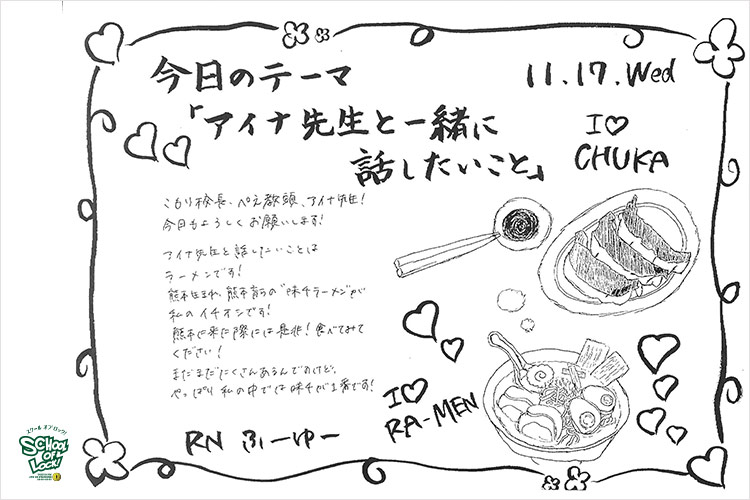 今日のテーマ
11.17.Wed
「アイナ先生と一緒に
話したいこと」
I♡
CHUKA
こもり校長、ぺえ教頭、アイナ先生!
今日もよろしくお願いします!
アイナ先生と話したいことは
ラーメンです!
熊本生まれ、熊本育ちの"味千ラーメン"が
私のイチオシです!
熊本に来た際には是非!食べてみて
ください!
まだまだたくさんあるんですけど、
やっぱり私の中では味千が1番です!
I♡
RA-MEN
RN ふーゆー
スクールオブロック!
SCHOOL
OF
LOCK!